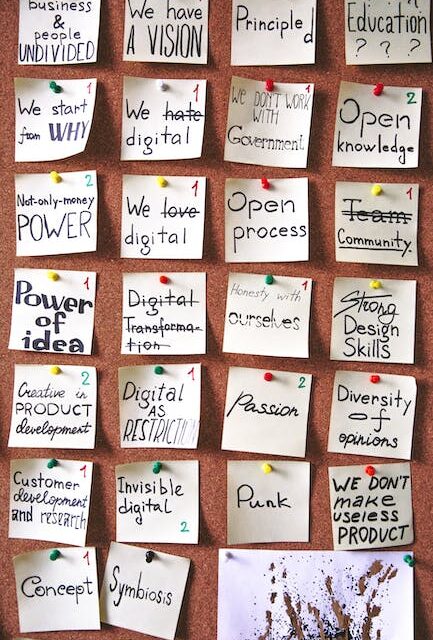 business
&
people
UNDIVIDED
We have
A VISION
Principled
Education
? ? ?
We start
from WHY
1
We hate
digital
1
We DON'T WORK
WITH
Government
1
Open
knowledge
2
Not-only-money
POWER
2
We love
digital
1
Open
process
Team
Community
1
Power
of
idea
1
Digital
Transforma-
tion
Honesty with
ourselves
1
Strong
Design
Skills
Creative in
PRODUCT
development
2
Digital
AS
RESTRICTION
1
Passion
2
Diversity
of
opinions
Customer
development
and research
1
Invisible
digital
2
Punk
WE DON'T
make
useless
PRODUCT
Concept
1
Symbiosis